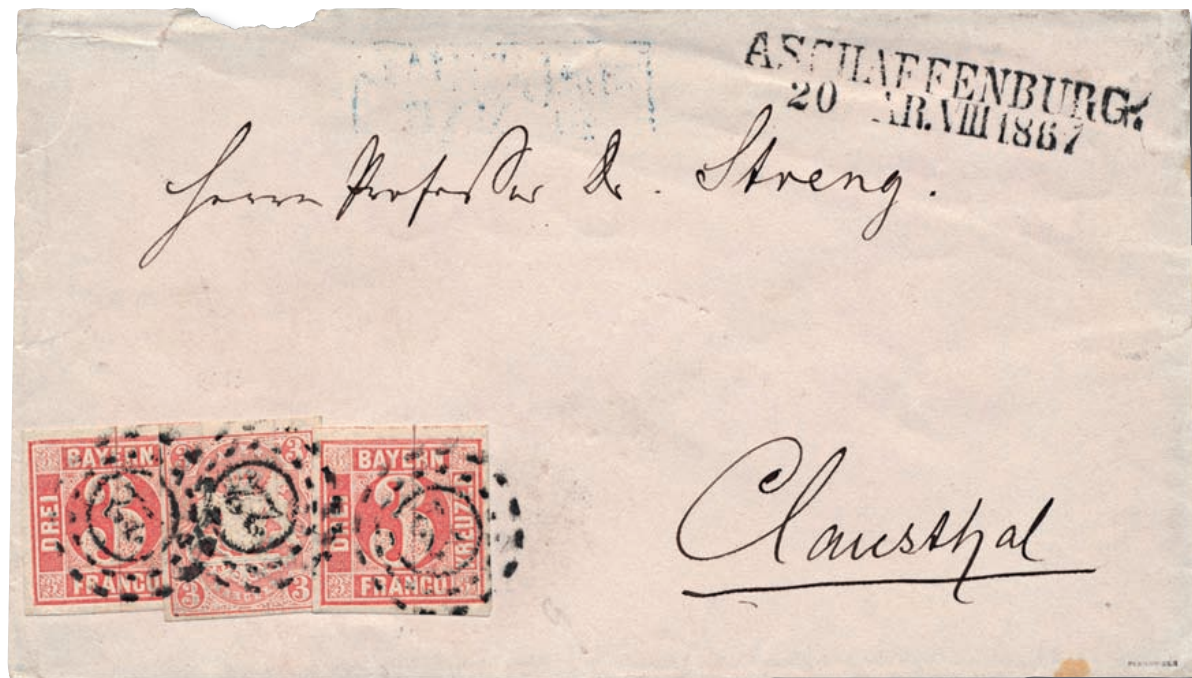 ASCHAFFENBURG.
20 AR. VIII 1867
Herrn Professor Dr. Streng.
Clausthal
BAYERN
DREI 3
FRANCO
3 3
3 3
22
BAYERN
DREI 3 KREUZER
FRANCO